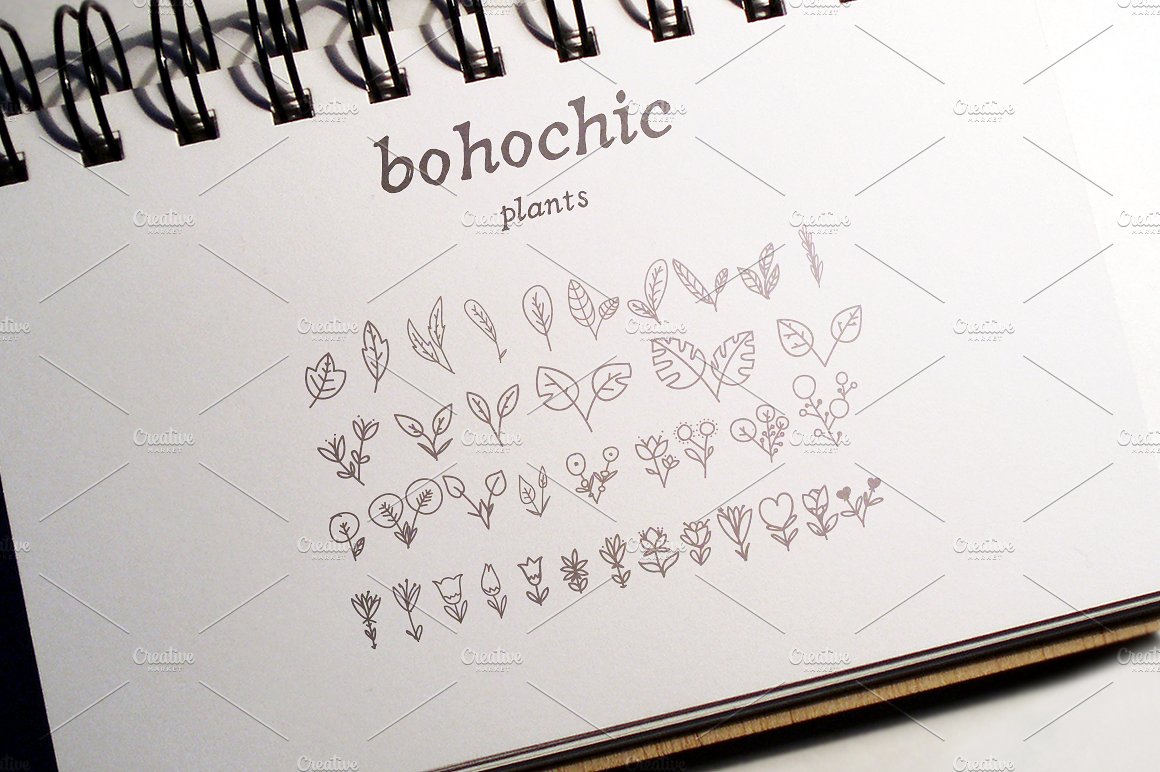 bohochic
plants
Creative
MARKET